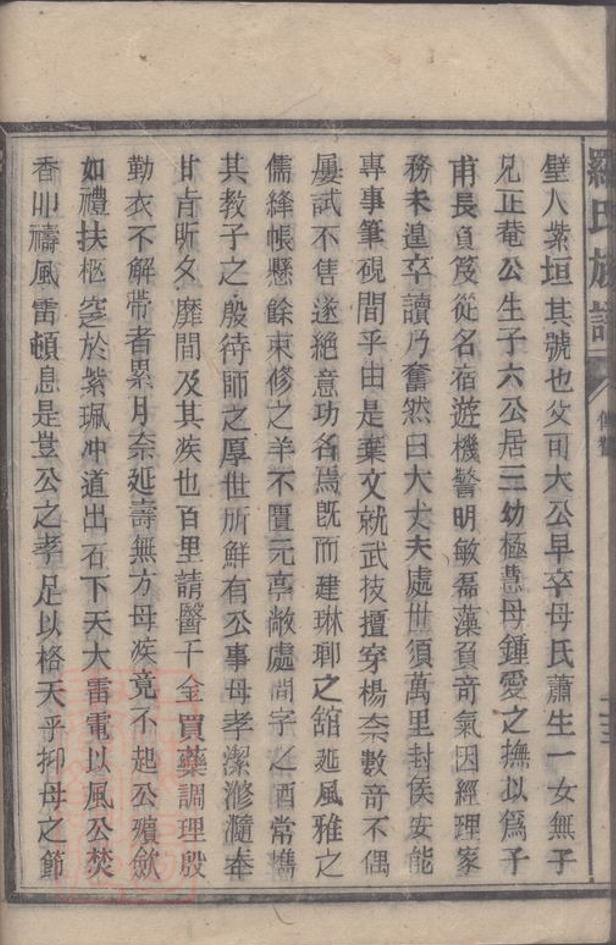 羅氏族譜
璧人紫垣其號也父可大公早卒母氏蕭生一女無子
兄正菴公生子六公居三幼極慧母鍾愛之撫以為子
甫長負笈從名宿遊機警明敏磊藻負竒氣因經理家
務未遑卒讀乃奮然曰大丈夫處世須萬里封侯安能
專事筆硯間乎由是葉文就武技擅穿楊柰數竒不偶
屢試不售遂絶意功名焉旣而建琳瑯之舘延風雅之
儒絳帳懸餘束修之羊不匱元亭敞處問字之酒常攜
其教子之殷待師之厚世所鮮有公事母孝潔滫瀡奉
甘旨昕夕靡間及其疾也百里請醫千金買藥調理殷
勤衣不解帶者累月柰延壽無方母疾竟不起公殯歛
如禮扶柩窆於紫珮冲道出石下天大雷電以風公焚
香叩禱風雷頓息是豈公之孝足以格天乎抑母之節